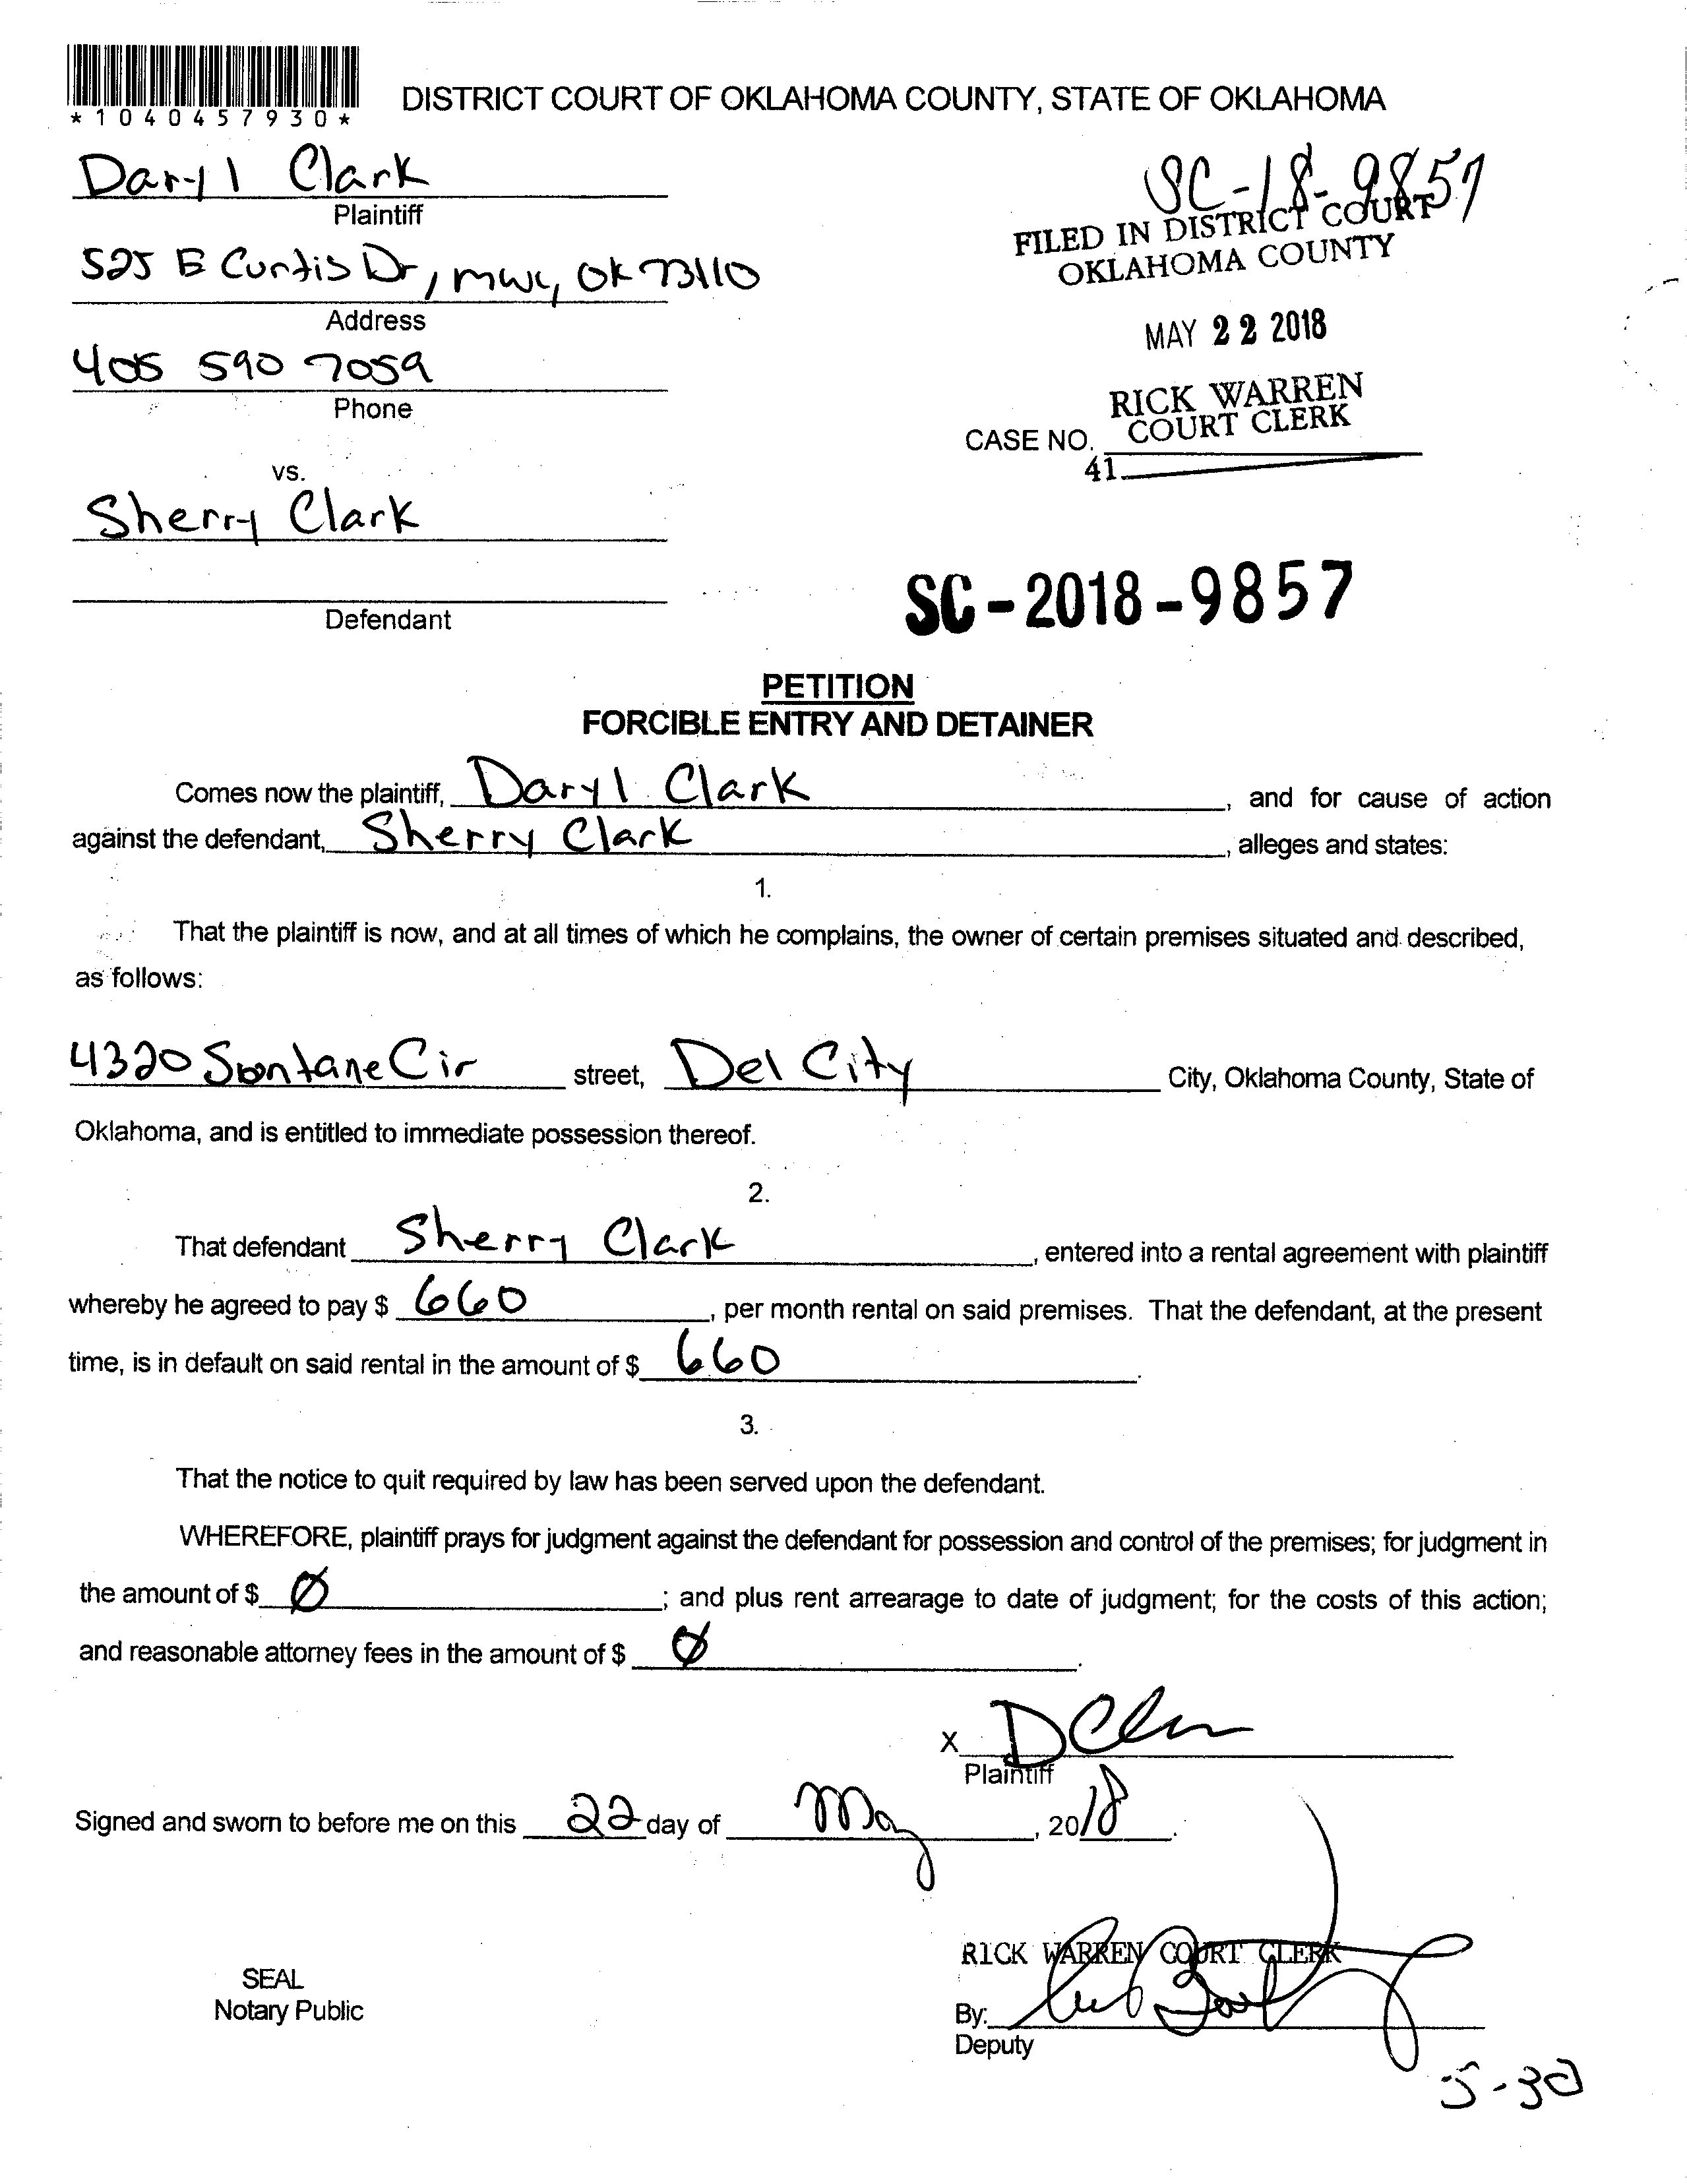 *1040457930*
DISTRICT COURT OF OKLAHOMA COUNTY, STATE OF OKLAHOMA
Daryl Clark
Plaintiff
SC-18-9857
FILED IN DISTRICT COURT
OKLAHOMA COUNTY
525 E Curtis Dr, MWC, OK 73110
Address
MAY 22 2018
405 590 7059
Phone
RICK WARREN
COURT CLERK
CASE NO.
41
vs.
Sherry Clark
Defendant
SC-2018-9857
PETITION
FORCIBLE ENTRY AND DETAINER
Comes now the plaintiff, Daryl Clark, and for cause of action
against the defendant, Sherry Clark, alleges and states:
1.
That the plaintiff is now, and at all times of which he complains, the owner of certain premises situated and described,
as follows:
4320 Cir street, Del City City, Oklahoma County, State of
Oklahoma, and is entitled to immediate possession thereof.
2.
That defendant Sherry Clark, entered into a rental agreement with plaintiff
whereby he agreed to pay $ 660, per month rental on said premises. That the defendant, at the present
time, is in default on said rental in the amount of $ 660.
3.
That the notice to quit required by law has been served upon the defendant.
WHEREFORE, plaintiff prays for judgment against the defendant for possession and control of the premises; for judgment in
the amount of $ Ø; and plus rent arrearage to date of judgment; for the costs of this action;
and reasonable attorney fees in the amount of $ Ø.
X
Plaintiff
Signed and sworn to before me on this 22 day of May, 2018.
RICK WARREN COURT CLERK
SEAL
Notary Public
By:
Deputy
5-30